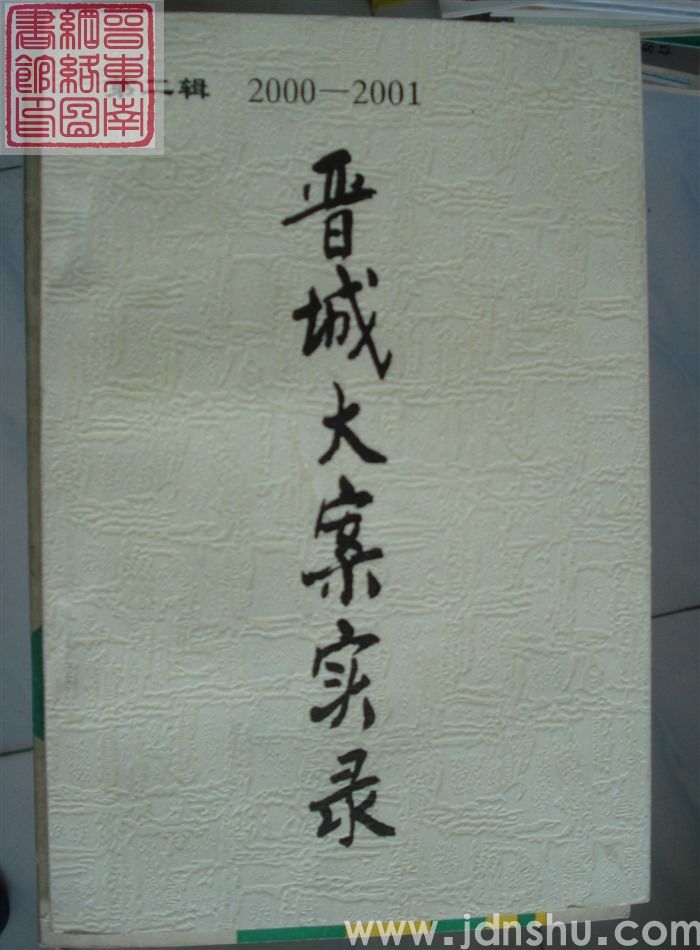 晋东南
網絡圖
書館印
第二辑 2000—2001
晋城大案实录
www.jdnshu.com